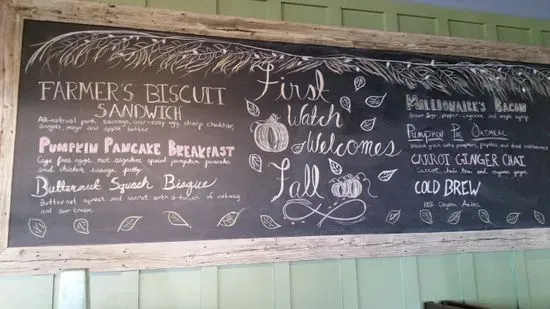 FARMER'S BISCUIT
SANDWICH
All-natural pork sausage, over-easy egg, sharp cheddar,
arugula, mayo and apple butter.
PUMPKIN PANCAKE BREAKFAST
Cage free eggs, our signature spiced pumpkin pancake
and chicken sausage patty.
Butternut Squash Bisque
Butternut squash and carrot with a touch of nutmeg
and sour cream.
First
Watch
Welcomes
Fall
MILLIONAIRE'S BACON
Brown sugar, pepper, cayenne and maple syrup
PUMPKIN PIE OATMEAL
grain oats, pumpkin, and dried cranberries
CARROT GINGER CHAI
Carrot, chai tea and organic ginger
COLD BREW
100% Organic Arabica